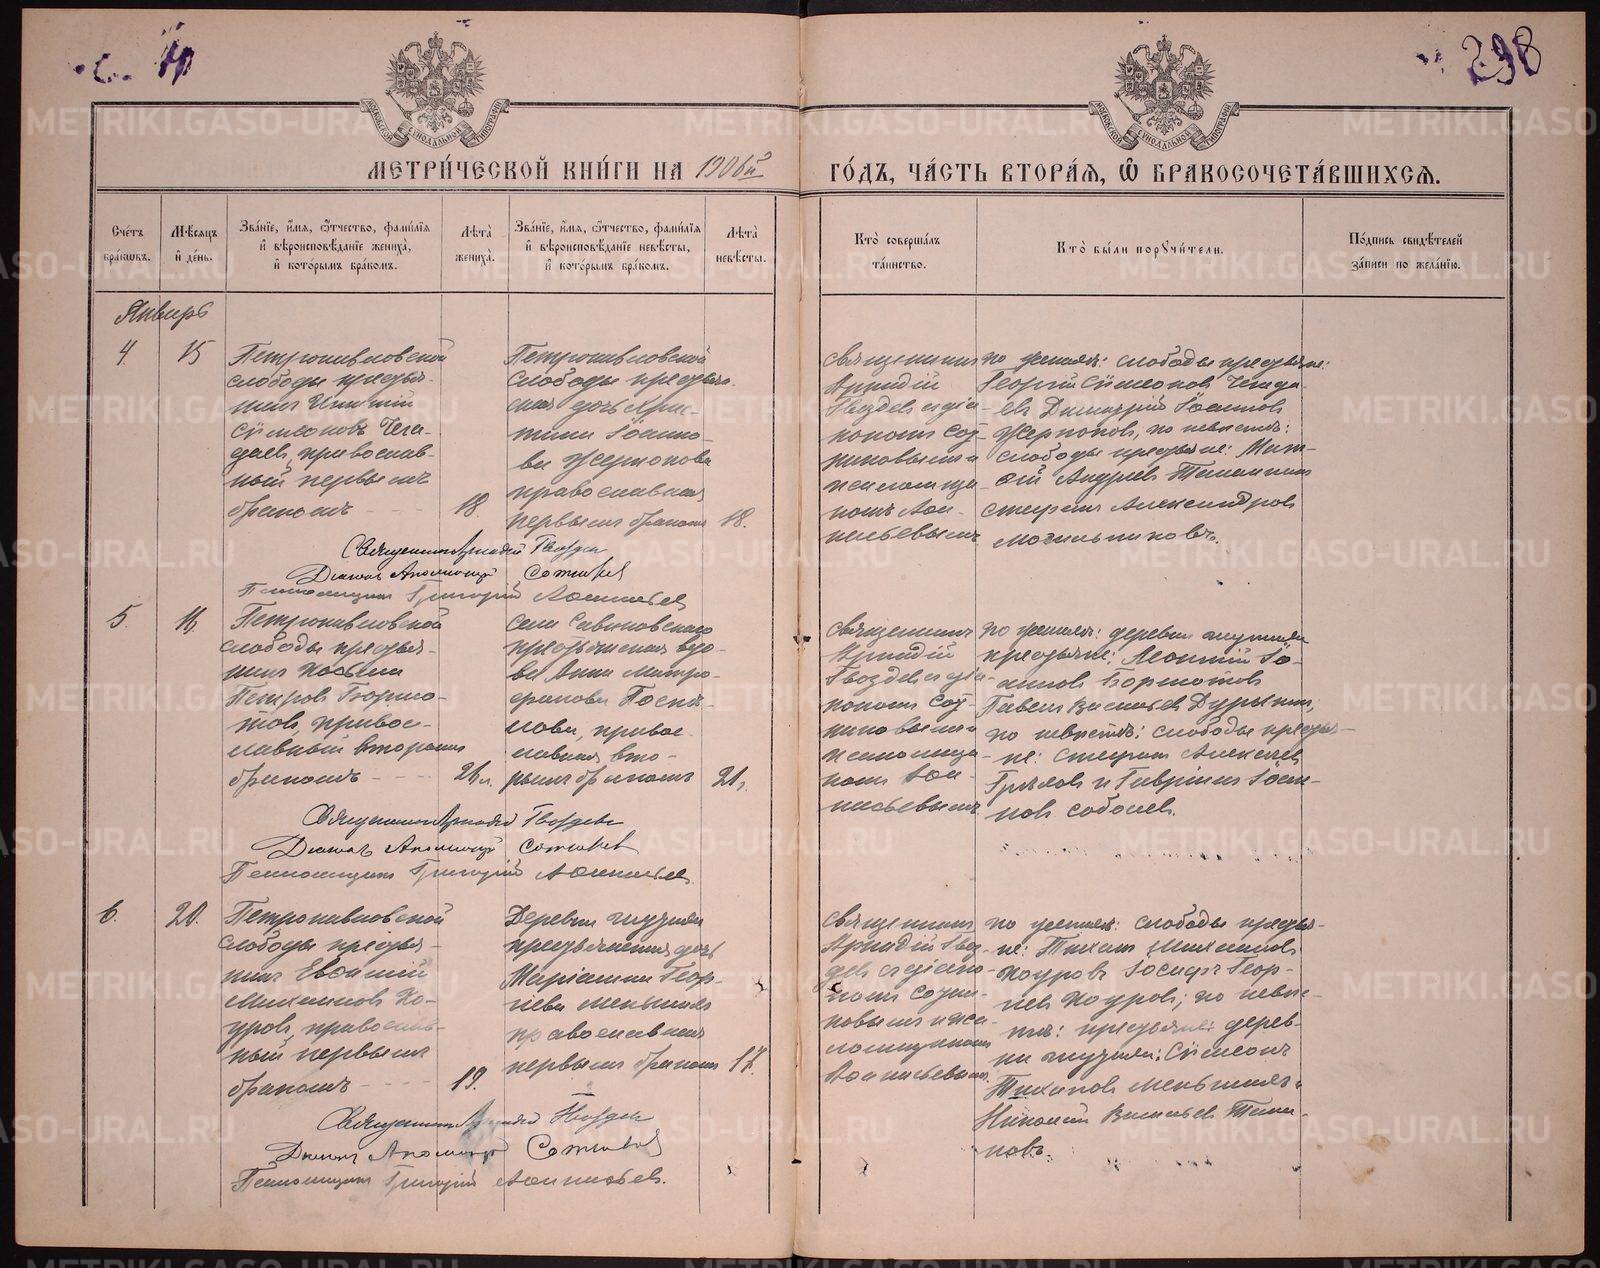 298
МОСКОВСКОЙ СѴНОДАЛЬНОЙ ТИПОГРАФІИ
МОСКОВСКОЙ СѴНОДАЛЬНОЙ ТИПОГРАФІИ
МЕТРИ́ЧЕСКОЙ КНИ́ГИ НА 1906й ГО́ДЪ, ЧА́СТЬ ВТОРА́Ѧ, Ѽ БРАКОСОЧЕТА́ВШИХСѦ.
Сче́тъ бра́ковъ.
Мѣ́сяцъ и҆ де́нь.
Зва́нїе, и҆́мѧ, ѻ҆́тчество, фами́лїѧ и҆ вѣроисповѣ́данїе жениха̀, и҆ кото́рымъ бра́комъ.
Лѣта̀ жениха̀.
Зва́нїе, и҆́мѧ, ѻ҆́тчество, фами́лїѧ и҆ вѣроисповѣ́данїе невѣ́сты, и҆ кото́рымъ бра́комъ.
Лѣта̀ невѣ́сты.
Кто̀ соверша́лъ та́инство.
Кто̀ бы́ли порꙋчи́тели.
По́дпись свидѣ́телей за́писи по жела́нїю.
Январь
4. 15
Петропавловской
слободы крестья-
нин
Сѵмеоновъ Чега-
даев, православ-
ный первым
браком 18.
Петропавловской
слободы крестьян-
ская дочь Хрис-
тина Іоанно-
ва Жернокова
православная
первым браком 18.
Священник
Аркадій
Гвоздев и діа-
коном Сот-
никовым и
псаломщи-
ком Аѳа-
насьевым
по женихѣ: слободы крестьяне:
Георгій Сѵмеонов Чегада-
ев Димитрій Іоаннов
Жерноков, по невѣстѣ:
слободы крестьяне: Мат-
ѳій Андреев
Стефан Александров
Мосильников.
Священник Аркадій Гвоздев
Диакон Аполлоній Сотников
Псаломщик Григорій Аѳанасьев
5. 16.
Петропавловской
слободы крестья-
нин Косьма
Петров
православный вторым
браком 26 л.
села Савиновскаго
крестьянская вдо-
ва Анна Митро-
фанова Поспѣ-
лова, правос-
лавная, вто-
рым браком 21.
Священник
Аркадій
Гвоздев и діа-
коном Сот-
никовым и
псаломщи-
ком Аѳа-
насьевым
по женихѣ: деревни
крестьяне; Леонтій Іо-
аннов
Павел Васильев Дурыгин,
по невѣстѣ: слободы крестья-
не: Стефан Алексеев
Грѣхов и Гавріил Іоан-
нов Соболев.
Священник Аркадій Гвоздев
Диакон Аполлоній Сотников
Псаломщик Григорій Аѳанасьев
6. 20.
Петропавловской
слободы крестья-
нин Евѳимій
Михаилов Ко-
уров, православ-
ный первым
браком 19.
Деревни
крестьянская дочь
Маріамна Геор-
гіева Меньшикова
православная
первым браком 17.
Священник
Аркадій Гвоз-
дев и діако-
ном Сотни-
ковым и пса-
ломщиком
Аѳанасьевым.
по женихѣ: слободы крестья-
не: Тихон Михаилов
Коуров Іосиф Геор-
гіев Коуров; по невѣс-
тѣ: крестьяне дерев-
ни Сѵмеон
Тихонов Меньшиков и
Николай Васильев
Священник Аркадій Гвоздев
Диакон Аполлоній Сотников
Псаломщик Григорій Аѳанасьев.
METRIKI.GASO-URAL.RU